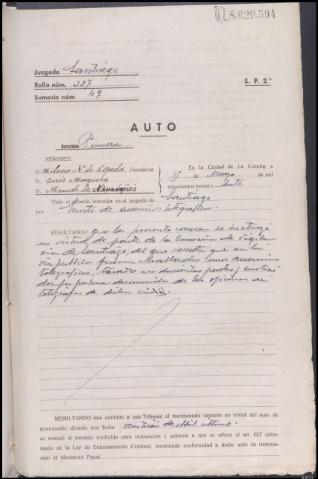 8.629.594
Juzgado Santiago
Rollo núm. 387
Sumario núm. 47
S. P. 2.ª
AUTO
Sección Primera
SEÑORES:
D. Presidente
D. Mosquera
D. Manuel
En la Ciudad de La Coruña a
15 de Mayo de mil
novecientos treinta y siete
Visto el sumario instruído en el Juzgado de Santiago
por hurto de
RESULTANDO que la presente causa se instruyó
en virtud de parte de la Comisión de Vigilan
cia de Santiago del que resulta que en la
vía pública fueron hallados unos
telegráficos, tasado en doscientas pesetas,
por persona desconocida de las oficinas de
telégrafos de dicha ciudad.
RESULTANDO que remitido a este Tribunal el mencionado sumario en virtud del auto de
terminación dictado con fecha de abril último
se acordó el traslado conferido para instrucción y petición a que se refiere el art. 627 refor-
mado de la Ley de Enjuiciamiento Criminal, mostrando conformidad a dicho auto de termina-
ción el Ministerio Fiscal